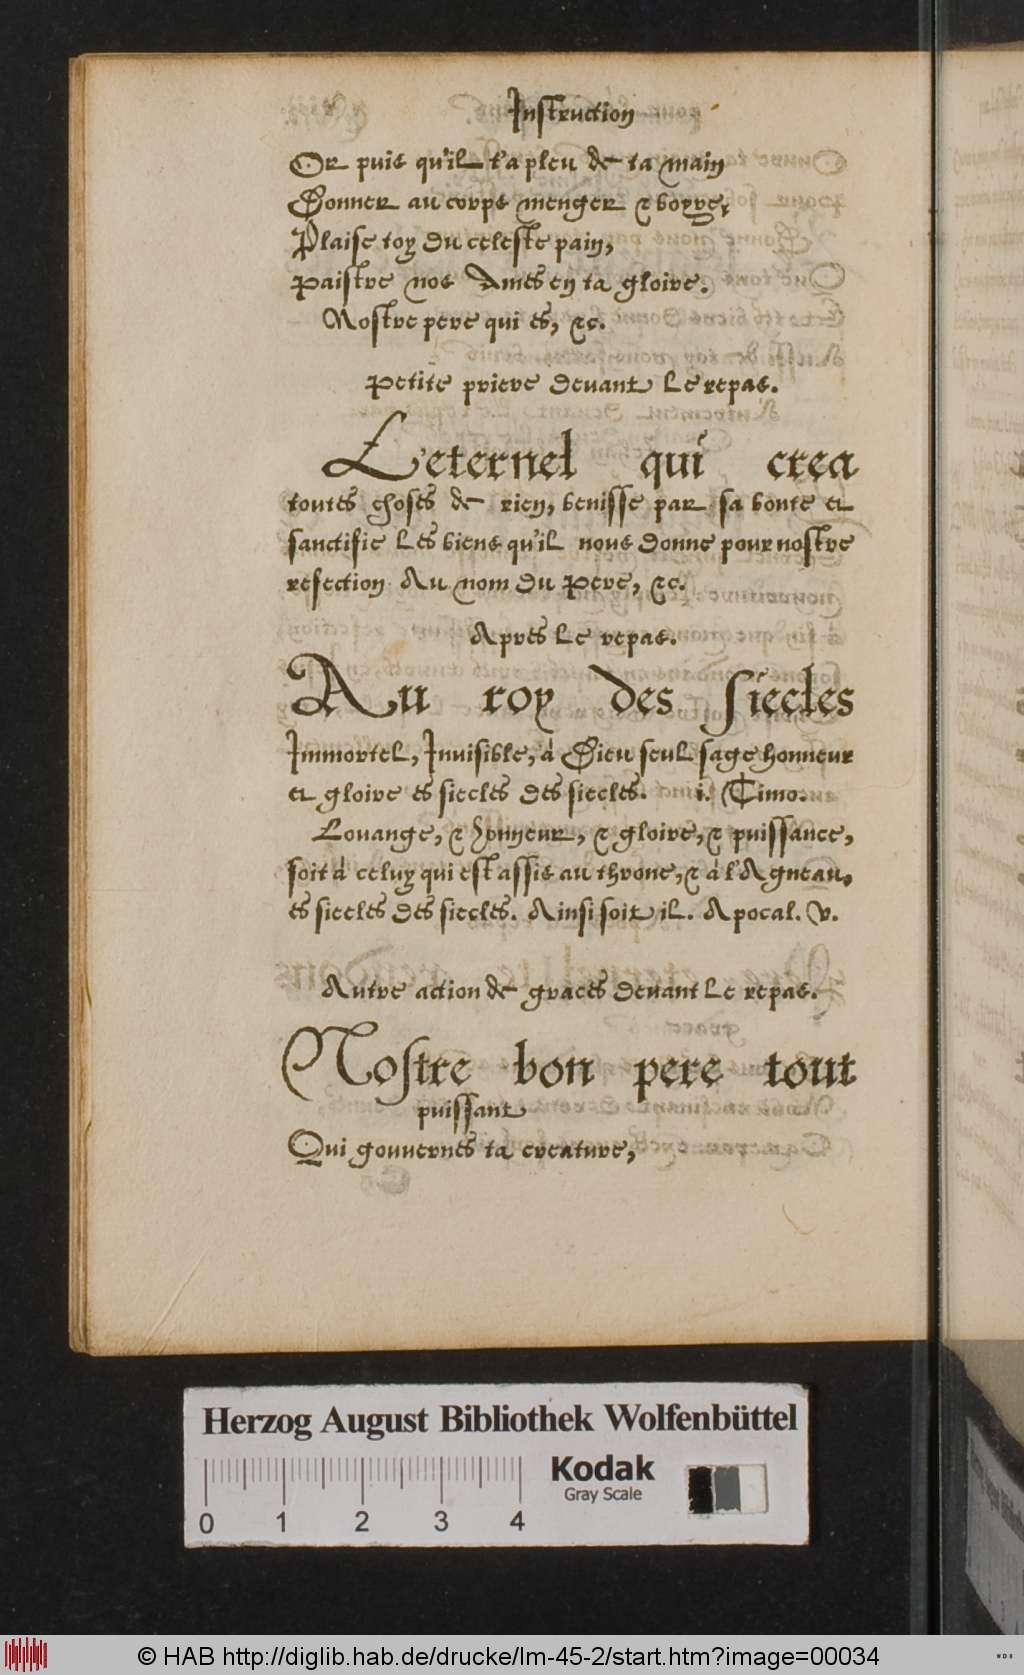 Instruction
Or puis qu'il t'a pleu de ta main
Donner au corps menger & boyre,
Plaise toy du celeste pain,
Paistre nos Ames en ta gloire.
Nostre pere qui es, &c.
Petite priere devant le repas.
L'eternel qui crea
toutes choses de rien, benisse par sa bonte et
sanctifie les biens qu'il nous donne pour nostre
refection Au nom du Pere, &c.
Apres le repas.
Au roy des siecles
Immortel, Invisible, à Dieu seul sage honneur
et gloire es siecles des siecles. i. Timo.
Louange, & honneur, & gloire, & puissance,
soit à celuy qui est assis au throne, & à l'Agneau,
es siecles des siecles. Ainsi soit il. Apocal. v.
Autre action de graces devant le repas.
Nostre bon pere tout
puissant
Qui gouvernes ta creature,
Herzog August Bibliothek Wolfenbüttel
Kodak
Gray Scale
0 1 2 3 4
© HAB http://diglib.hab.de/drucke/lm-45-2/start.htm?image=00034